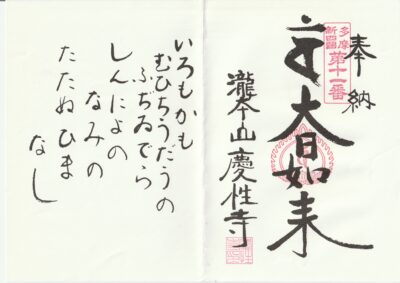 奉納
多摩
新四国
第十一番
大日如来
瀧本山慶性寺
いろもかも
むひちうだうの
ふぢゐでら
しんによの
なみの
たたぬひま
なし